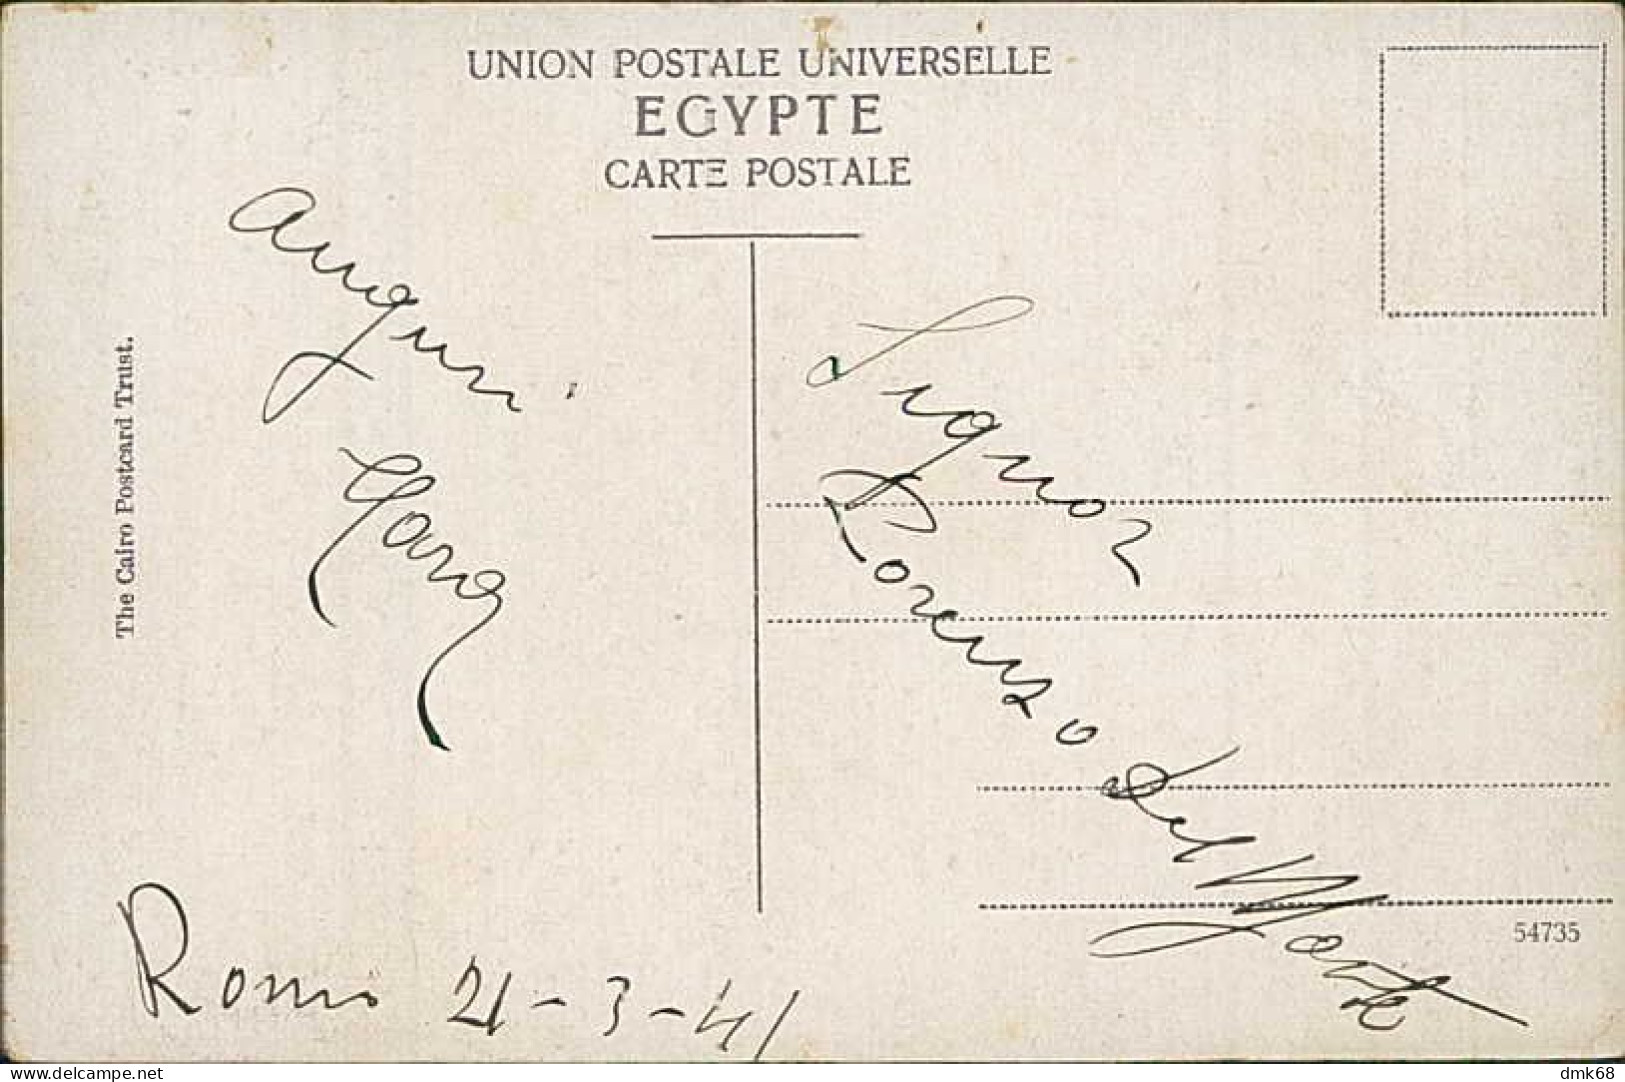 UNION POSTALE UNIVERSELLE
EGYPTE
CARTE POSTALE
The Cairo Postcard Trust.
Auguri
Signor
Lorenzo
Del Monte
Roma 21-3-41
54735
delcampe.net
dmk68